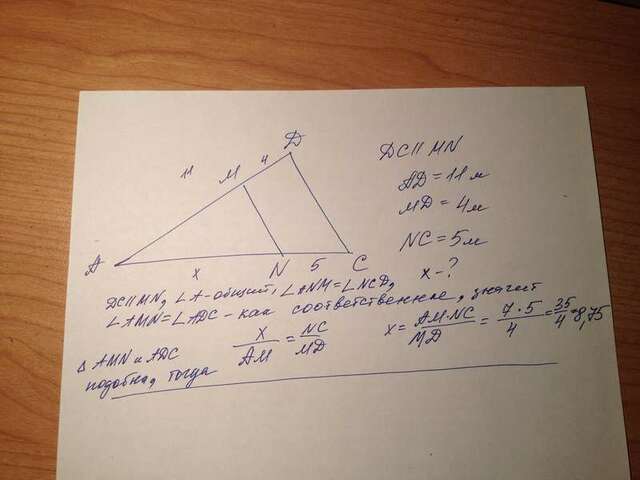 D
11
M
4
DC || MN
AD = 11 м
MD = 4 м
NC = 5 м
x - ?
A
x
N
5
C
DC || MN, ∠A - общий, ∠ANM = ∠NCD,
∠AMN = ∠ADC - как соответственные, значит
△ AMN и ADC
подобны, тогда
x/AM = NC/MD
x = AM·NC/MD = 7·5/4 = 35/4 = 8,75